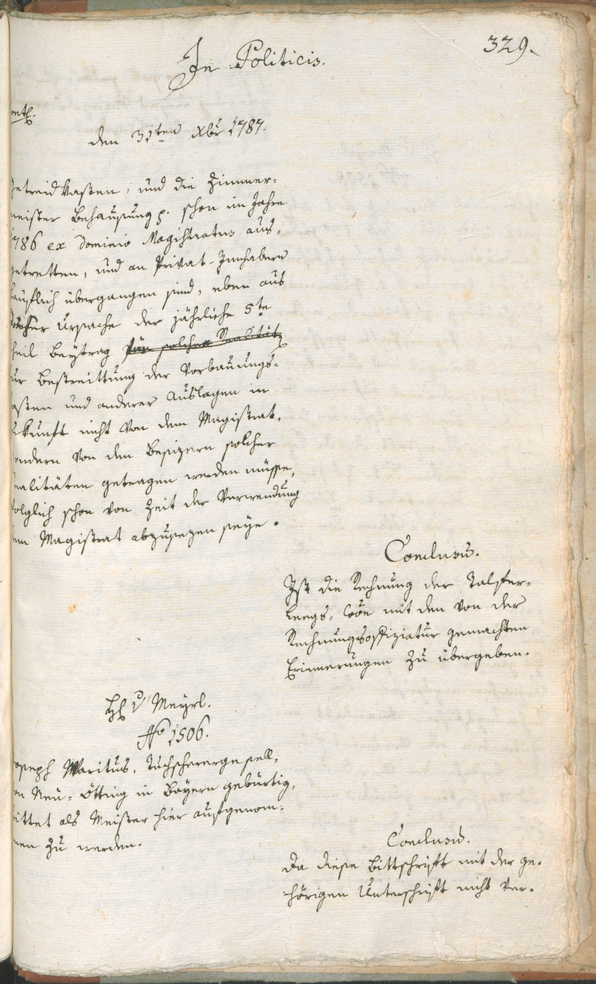 In Politicis.
329.
den 31ten Xbr 1787.
etreidkasten, und die Zimmer-
meister Behausung p. schon im Jahre
786 ex Dominio Magistratus aus-
etretten, und an Privat-Innhabere
käuflich übergangen sind, eben aus
dieser Ursache der jährliche 5te
heil Beytrag für solche Realität
ur Bestreittung der Verbauungs-
osten und anderer Auslagen in
kunft nicht von dem Magistrat,
ondern von den Besizern solcher
ealitäten getragen werden müsse,
olglich schon von Zeit der Verwendung
em Magistrat abzusezen seye.
Conclusū.
Ist die Rechnung der Talfer-
Leegs-Coôn mit den von der
Rechnungsoffiziatur gemachten
Erinnerungen zu übergeben.
H v Meyrl.
No 1506.
oseph Maritus, Tuchscherergesell,
on Neu-Ötting in Bayern gebürtig,
ittet als Meister hier aufgenom-
men zu werden.
Conclusū.
Da diese Bittschrift mit der ge-
hörigen Unterschrift nicht ver-